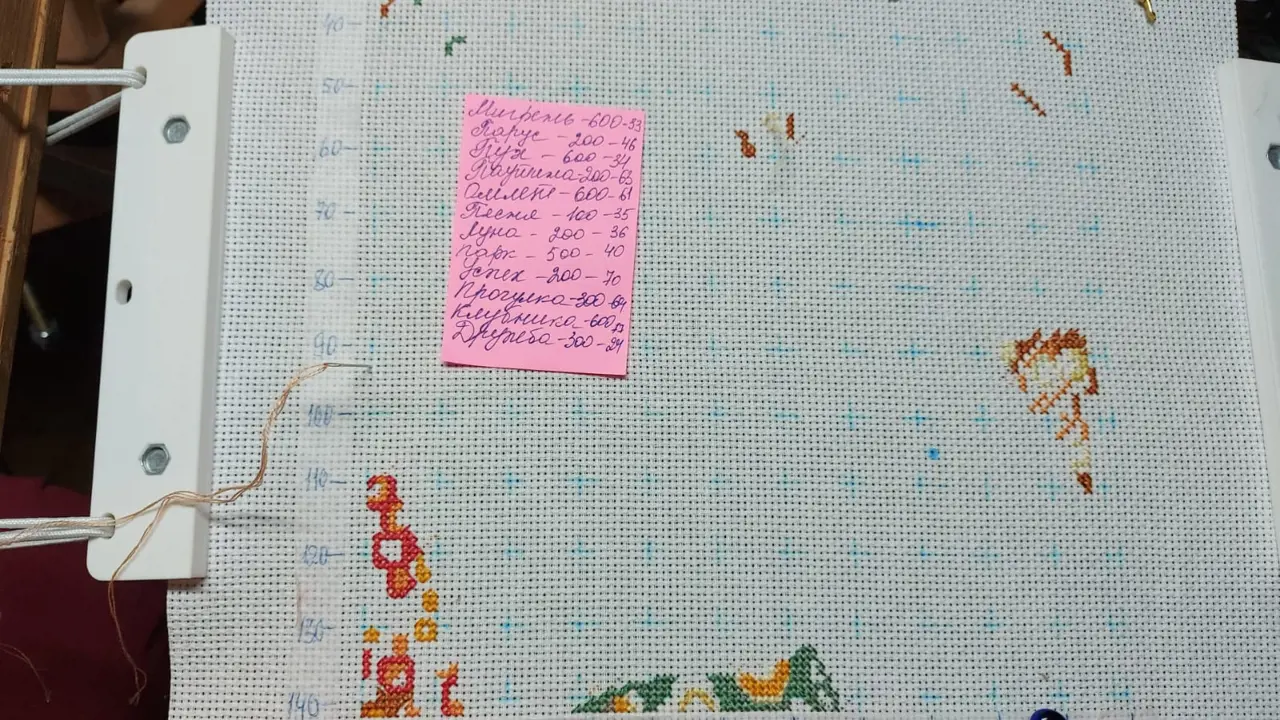 40-
50-
60-
70-
80-
90-
100-
110-
120-
130-
140-
Мигрень-600-33
Парус - 200-46
Пух - 600-34
Паутина-200-63
Омлет-600-61
Песня - 100-35
Луна - 200 - 36
Парк - 500 - 40
Успех - 200 - 70
Прогулка-300-64
Клубника-600
Дружба-300-24